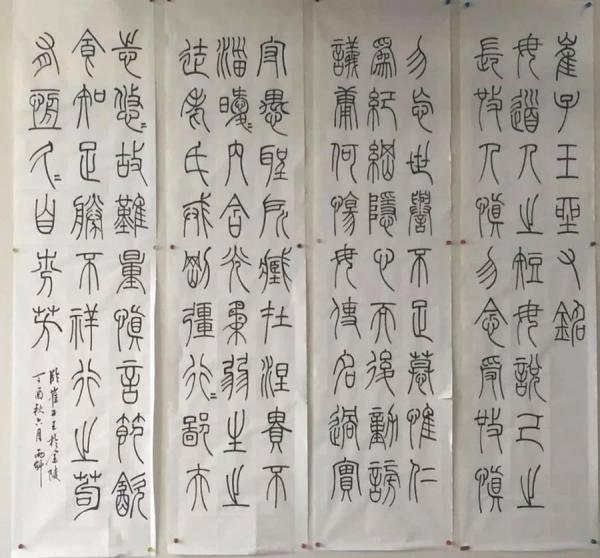 崔子玉座右銘
毋道人之短毋說己之
長施人慎勿念受施慎
勿忘世譽不足慕惟仁
為紀綱隱心而後動謗
議庸何傷毋使名過實
守愚聖所臧在涅貴不
淄曖〻內含光柔弱生之
徒老氏戒剛彊行〻鄙夫
志悠〻故難量慎言節飲
食知足勝不祥行之苟
有恆久〻自芬芳
臨崔子玉於金陵
丁酉秋六月雨